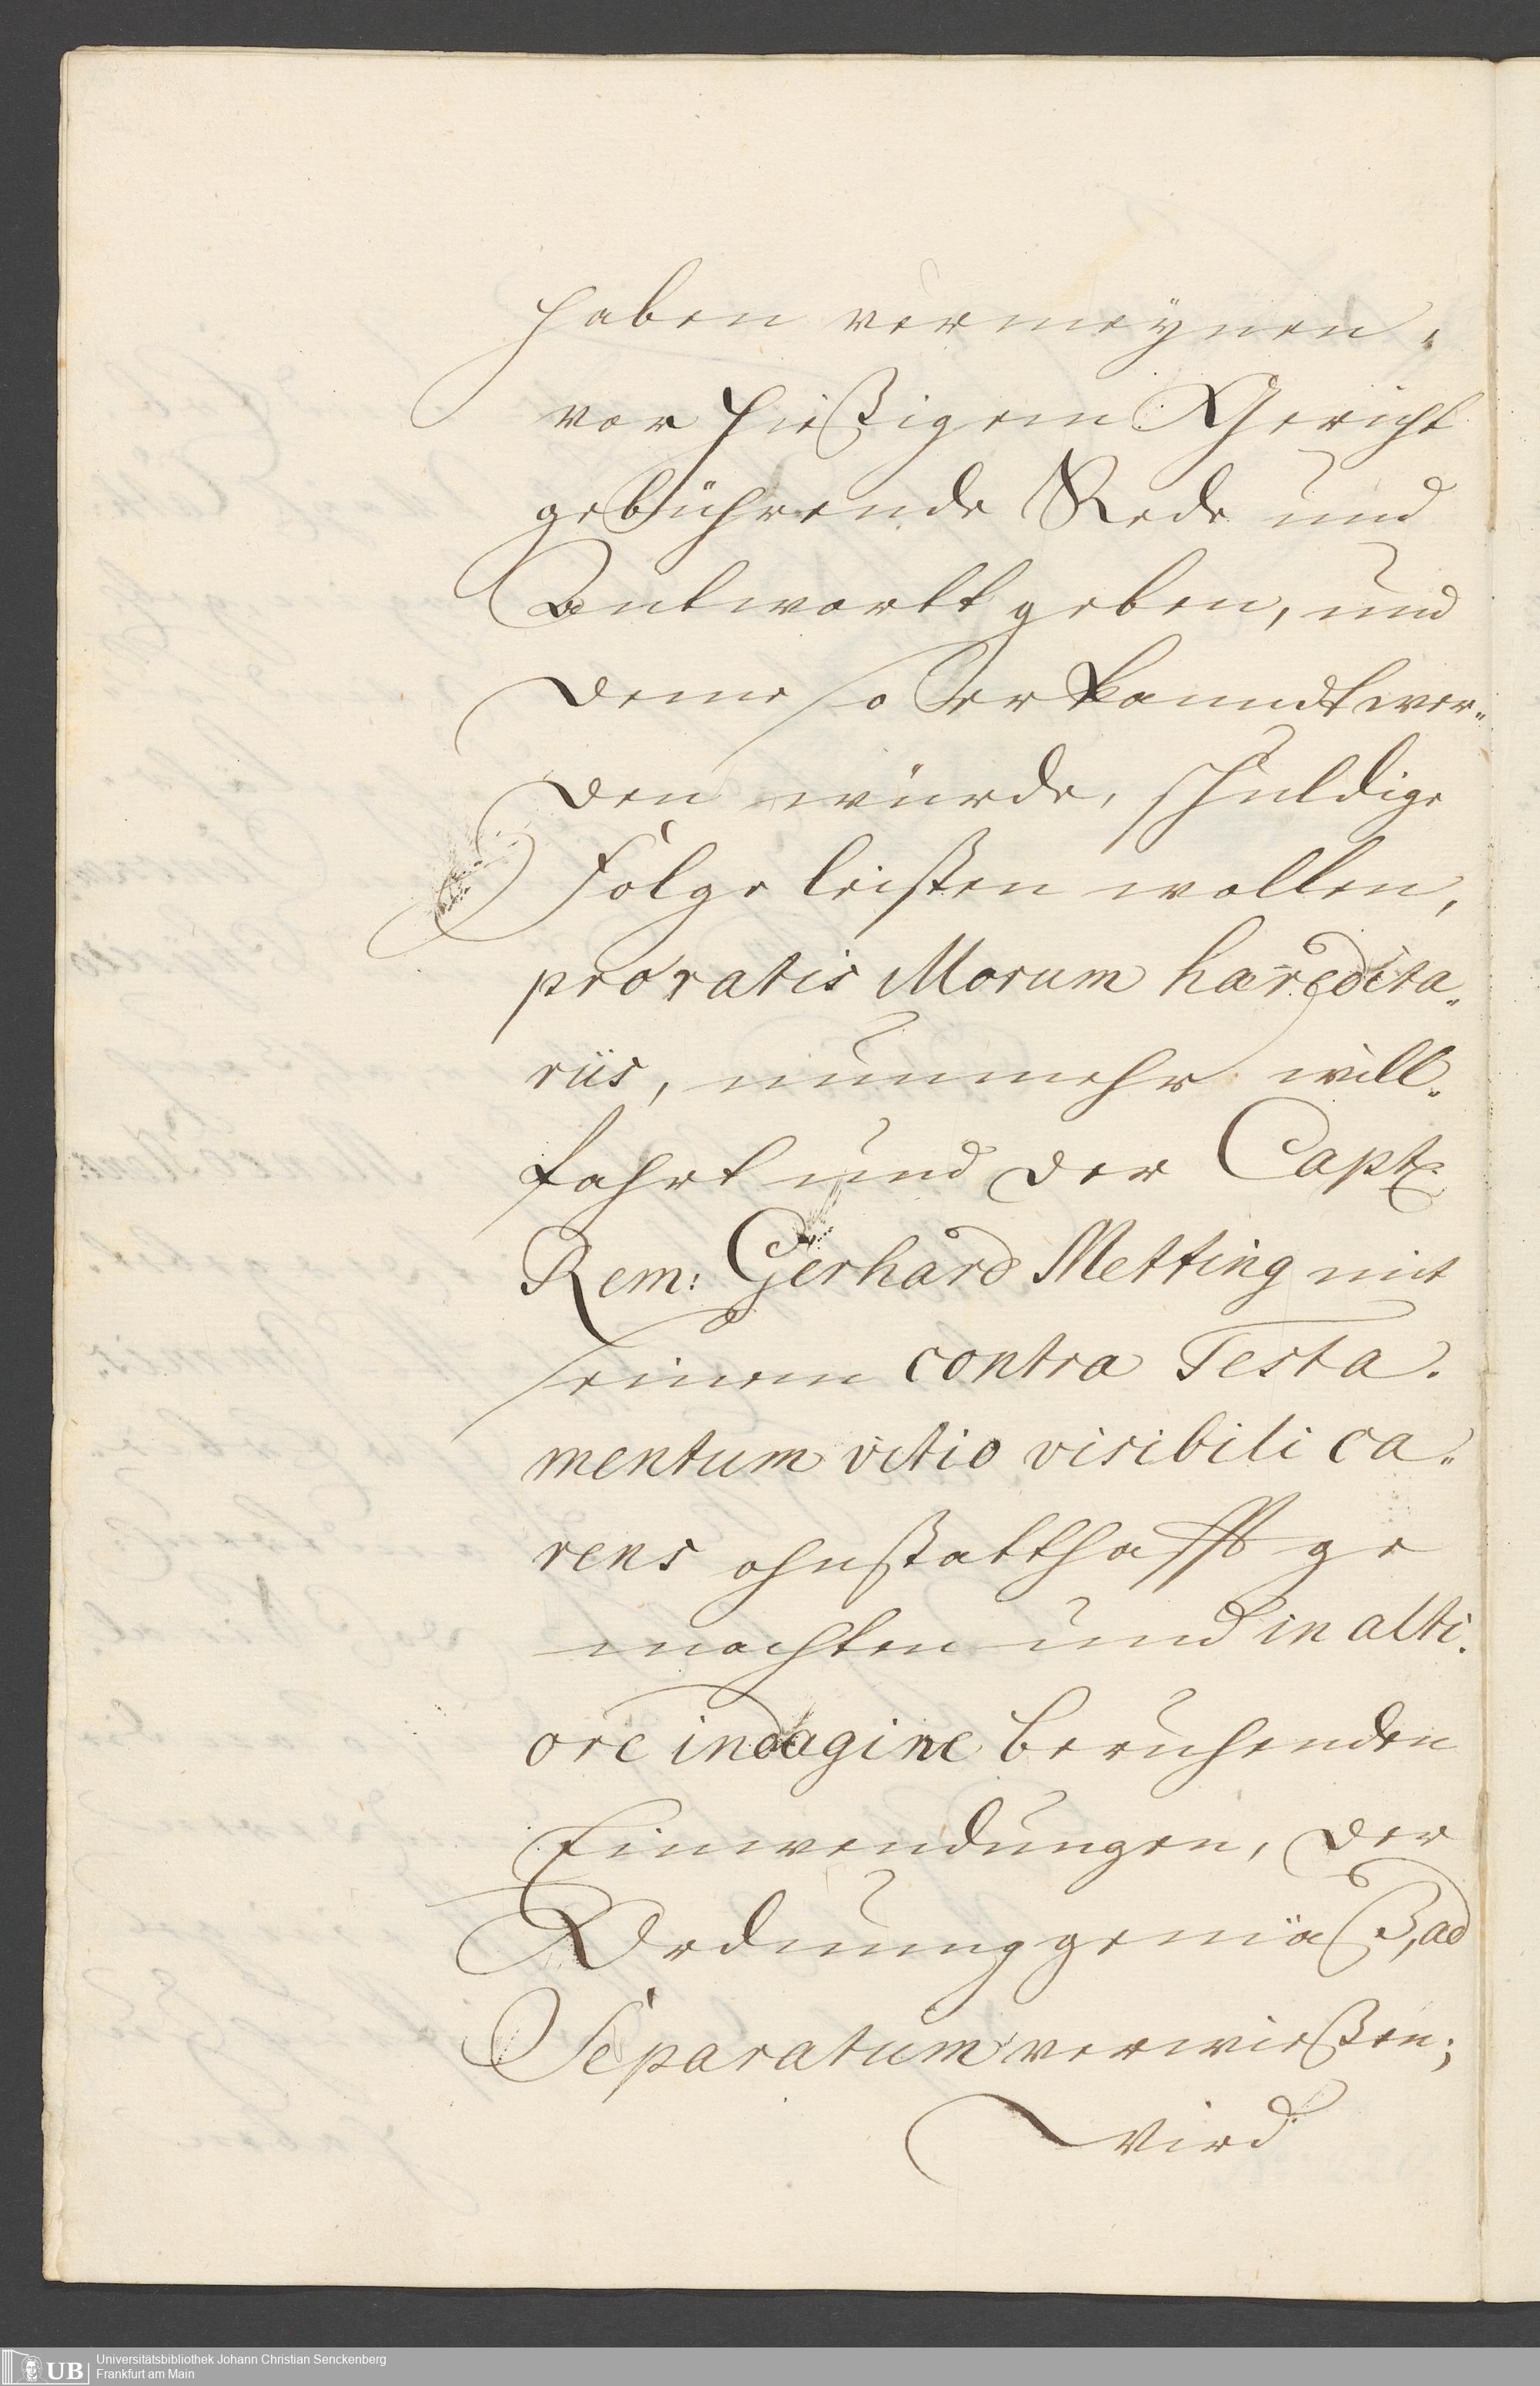 haben vermeynen,
vor hießigem Gericht
gebührende Rede und
Antwortt geben, und
deme so Erkanndt wer„
den würde, schuldige
Folge leisten wollen,
pro ratis Morum hæredita„
riis, nunmehr will„
fahrt und der Capt:
Rem: Gerhard Metting mit
seinem contra Testa„
mentum vitio visibili ca„
rens ohnstatthafft ge
machten und in alti„
ore indagine beruhenden
Einwendungen, der
Ordnung gemäß, ad
Separatum verwießen;
Wird
UB Universitätsbibliothek Johann Christian Senckenberg
Frankfurt am Main